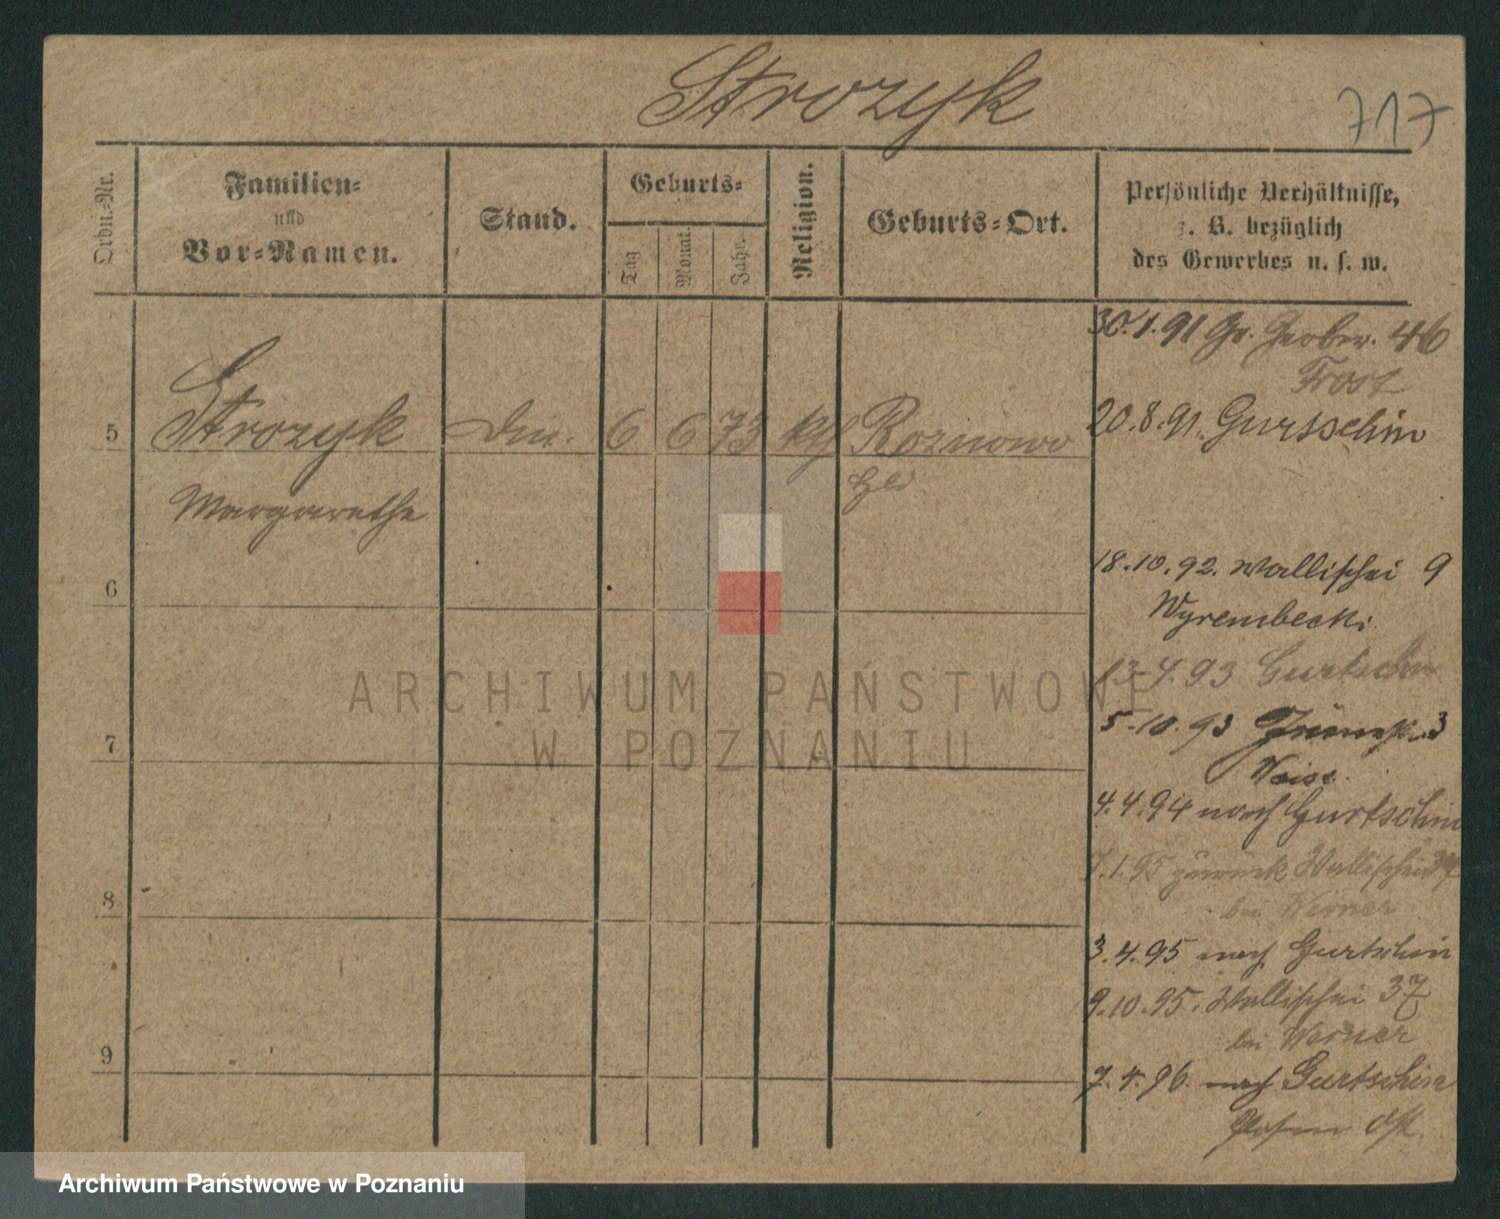 Strozyk
717
Ordn.-Nr.
Familien-
und
Vor-Namen.
Stand.
Geburts-
Tag
Monat.
Jahr.
Religion.
Geburts-Ort.
Persönliche Verhältnisse,
z. B. bezüglich
des Gewerbes u. s. w.
30.1.91 Gr. Gerber. 46
Frost
5 Strozyk 6 6 73 Roznowo
20.8.91. Gurtschin
Margarethe
18.10.92. Wallischei 9
6
Wyrembecki
13.4.93 Gurtschin
5.10.93 3
7
Weiss
4.4.94 nach Gurtschin
7.1.95 zurück Wallischei
bei Werner
8
3.4.95 nach Gurtschin
9.10.95. Wallischei 37
bei Werner
9
7.4.96 nach Gurtschin
Posen Ost
ARCHIWUM PAŃSTWOWE
W POZNANIU
Archiwum Państwowe w Poznaniu